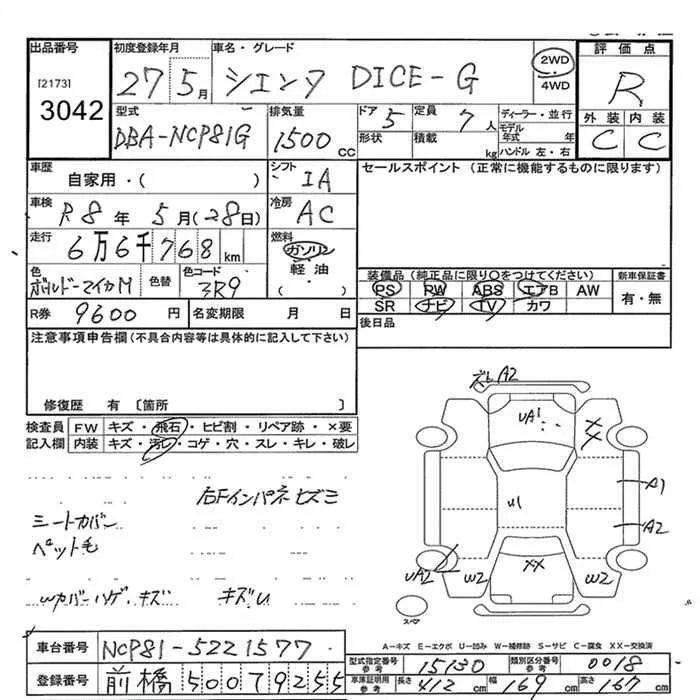 出品番号 初度登録年月 車名・グレード 評価点
[2173]
3042
27 5月 シエンタ DICE-G 2WD
4WD
R
型式 排気量 ドア 定員 ディーラー・並行 外装 内装
DBA-NCP81G 1500 CC 5 7人 モデル年式 年 C C
形状 積載 kg ハンドル 左・右
車歴 シフト セールスポイント (正常に機能するものに限ります)
自家用・( ) IA
車検 冷房
R8年 5月(28日) AC
走行 燃料
6万6千768 km ガソリン
軽油
・( )
色 色替 色コード
ボルドーマイカM 3R9
装備品 (純正品に限り○をつけてください) 新車保証書
PS PW ABS エアB AW 有・無
SR ナビ TV カワ
R券 9600 円 名変期限 月 日
後日品
注意事項申告欄(不具合内容等は具体的に記入して下さい)
修復歴 有 〔箇所 〕
検査員 FW キズ・飛石・ヒビ割・リペア跡・×要
記入欄 内装 キズ・汚レ・コゲ・穴・スレ・キレ・破レ
右Fインパネヒズミ
シートカバー
ペット毛
Wカバーハゲ・キズ キズU
ズレA2
UA1
XX
U1
A1
A2
XX
UA2 W2 W2
スペア
A-キズ E-エクボ U-凹み W-補修跡 S-サビ C-腐食 XX-交換済
車台番号 NCP81-5221577
型式指定番号 参考 15130 類別区分番号 参考 0018
登録番号 前橋 500 79255
車庫証明用 参考 長さ 412 cm 幅 169 cm 高さ 167 cm